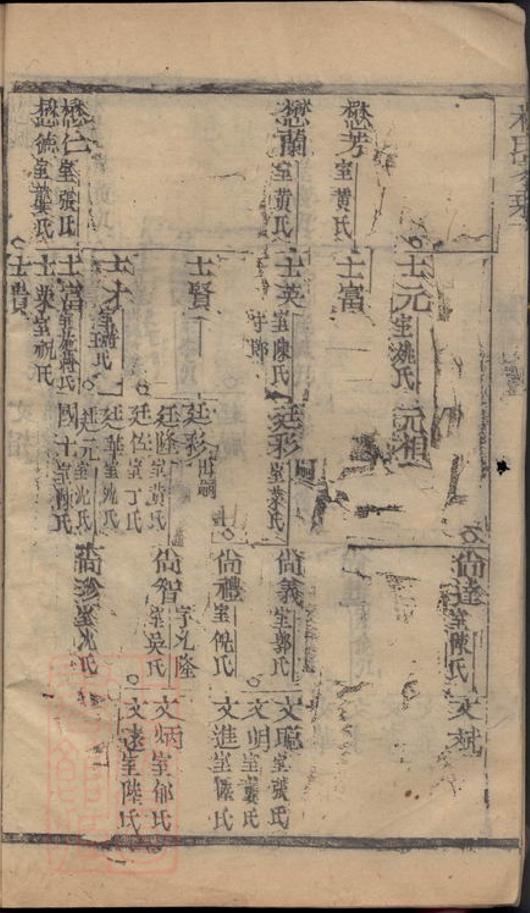 懋芳室黃氏
懋蘭室黃氏
懋仁室張氏
懋德室龔氏
士元室姚氏
士富
士英室陳氏
士賢
士才
士富室施氏
士榮室祝氏
士賢
元祖
廷彩室葉氏
廷彩出嗣
廷隆室黃氏
廷佐室丁氏
廷華室沈氏
廷元室沈氏
國士室陳氏
尙達室陳氏
尙義室郭氏
尙禮室倪氏
尙智室吳氏
字九隆
尙珍室沈氏
文斌
文聰室張氏
文明室龔氏
文進室陸氏
文炳室郁氏
文達室陸氏